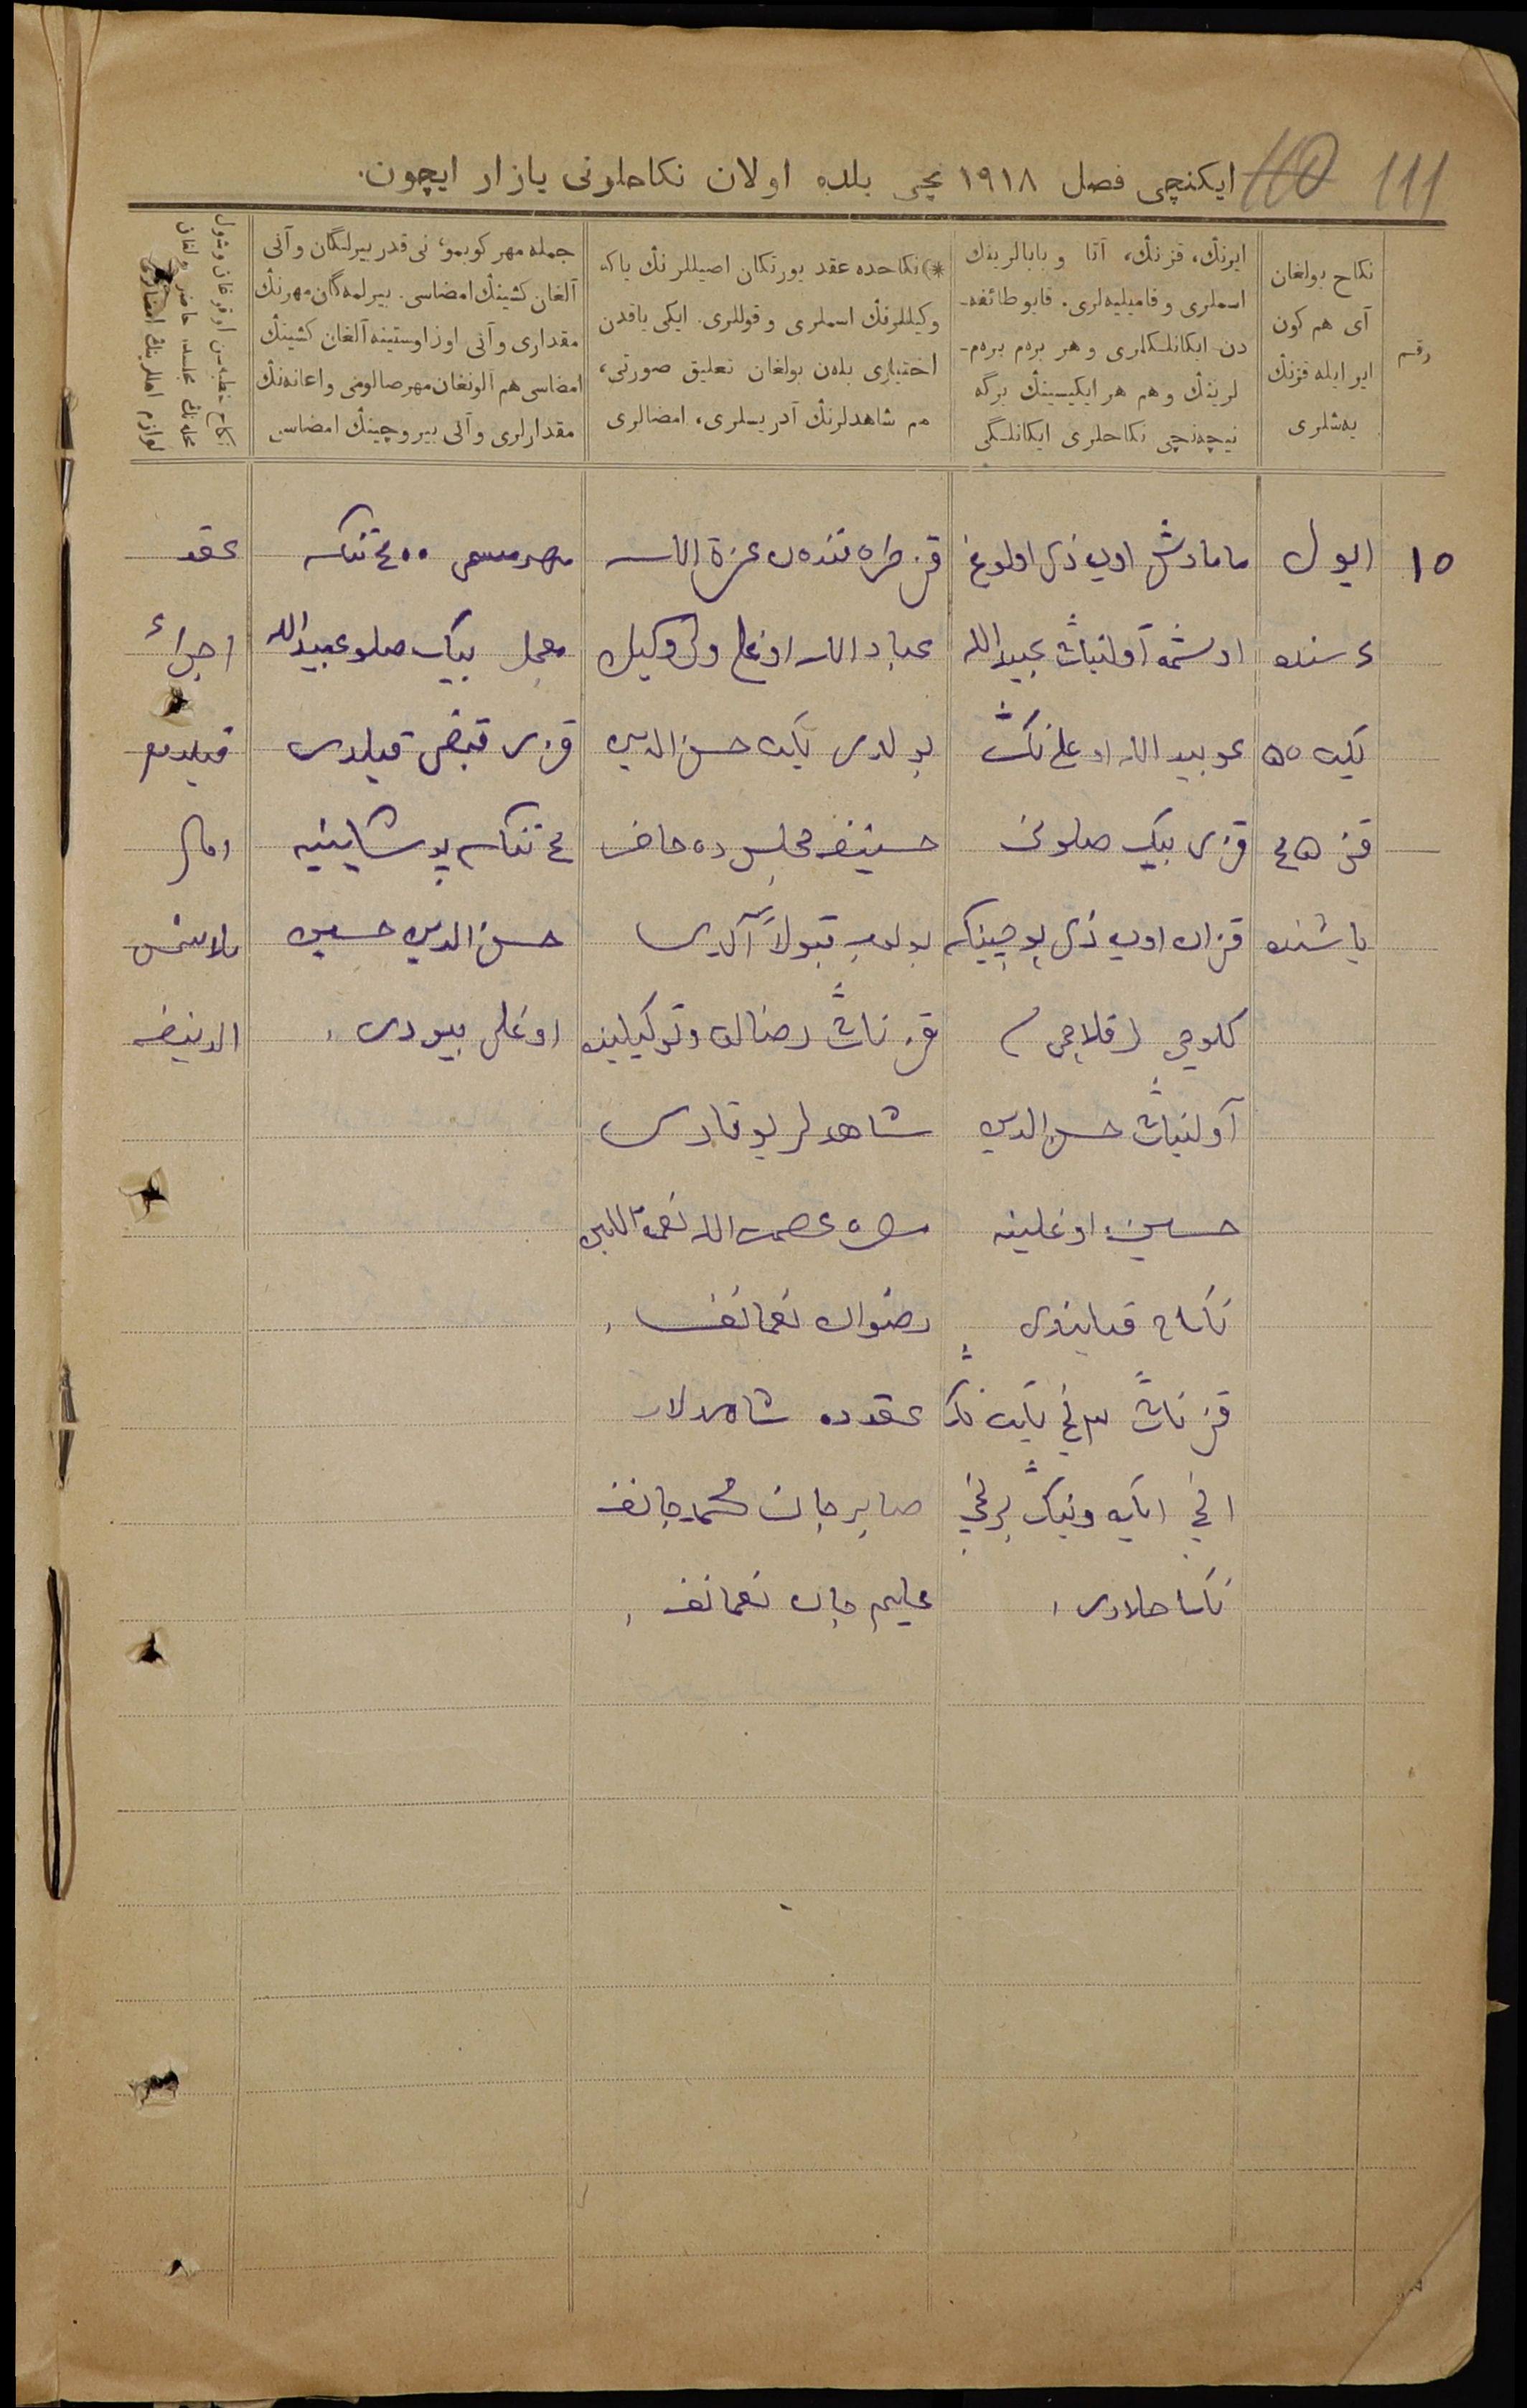 111
110
ایکنچی فصل ١٩١٨ نچی یلده اولان نکاحلرنی یازار ایچون.
رقم
نکاح بولغان
آی هم کون
ایر ایله قزنڭ
یه‌شلری
ایرنڭ، قزنڭ، آتا و بابالرینڭ
اسملری و فامیلیه‌لری. قایو طائفه-
دن ایکانلکلری و هر برم برم-
لرینڭ و هم هر ایکیسینڭ برگه
نیچه‌نچی نکاحلری ایکانلگی
*) نکاحده عقد یورتکان اصیللرنڭ یاکه
وکیللرنڭ اسملری و قوللری. ایکی یاقدن
اختیاری بله‌ن بولغان تعلیق صورتی،
هم شاهدلرنڭ آدریسلری، امضالری
جمله مهر کوبمو، نی قدر بیرلگان و آنی
آلغان کشینڭ امضاسی. بیرلمه‌گان مهرنڭ
مقداری و آنی اوز اوستینه آلغان کشینڭ
امضاسی هم آلونغان مهر صالومی و اعانه‌نڭ
مقدارلری و آنی بیروچینڭ امضاسی
نکاح خطبه‌سن اوقوغان وشول
١٥
ایول
٤ سنده
یکیت ٥٥
قز ٤٥
یاشنده
مامادش اویازی اولوغ
اوشمه آولنیڭ عبیدالله
عوبیدالله اوغلی‌نڭ
قزی بیک صلونی
قزان اویازی بوچینکه
کلوچی (قلاچی)
آولنیڭ حسن الدین
حسین اوغلینه
نکاح قیلندی
قز نڭ ٣ نچی یکیت نڭ
٢ نچی ایکه وینڭ برنچی
نکاحلاری.
قز طرفندن عزة الله
عباد الله اوغلی ولی وکیل
بولدی یکیت حسن الدین
حسینف مجلس ده حاضر
بولوب قبولاً آلدی
قز نڭ رضالق و توکیلینه
شاهدلر یوقاری
عصمت الله نعمة اللین
رضوان نعمانف.
عقدده شاهدلار
صابرجان محمدجانف
علیم جان نعمانف.
مهر مسمی ٤٠٠ تنکه
معجل بیک صلو عبیدالله
قزی قبض قیلدی
٤ تنکه پوشلینه
حسن الدین حسین
اوغلی بیردی.
عقد
اجراء
قیلدم
امام
ملا شمس
الدینف